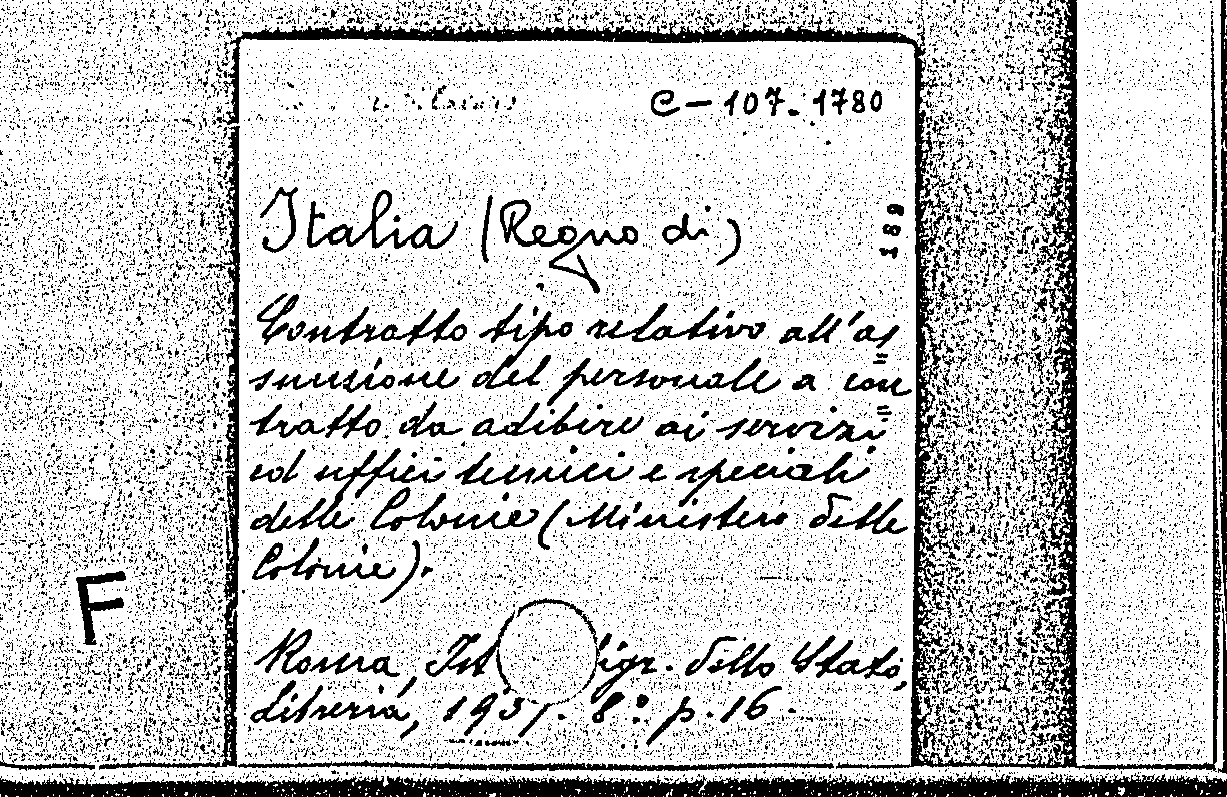 C - 107. 1780
Italia (Regno di)
189
Contratto tipo relativo all'as=
sunzione del personale a con=
tratto da adibire ai servizi
ed uffici tecnici e speciali
delle Colonie (Ministero delle
Colonie).
F
Roma, Ist igr. dello Stato,
Libreria, 1931. 8º p. 16.